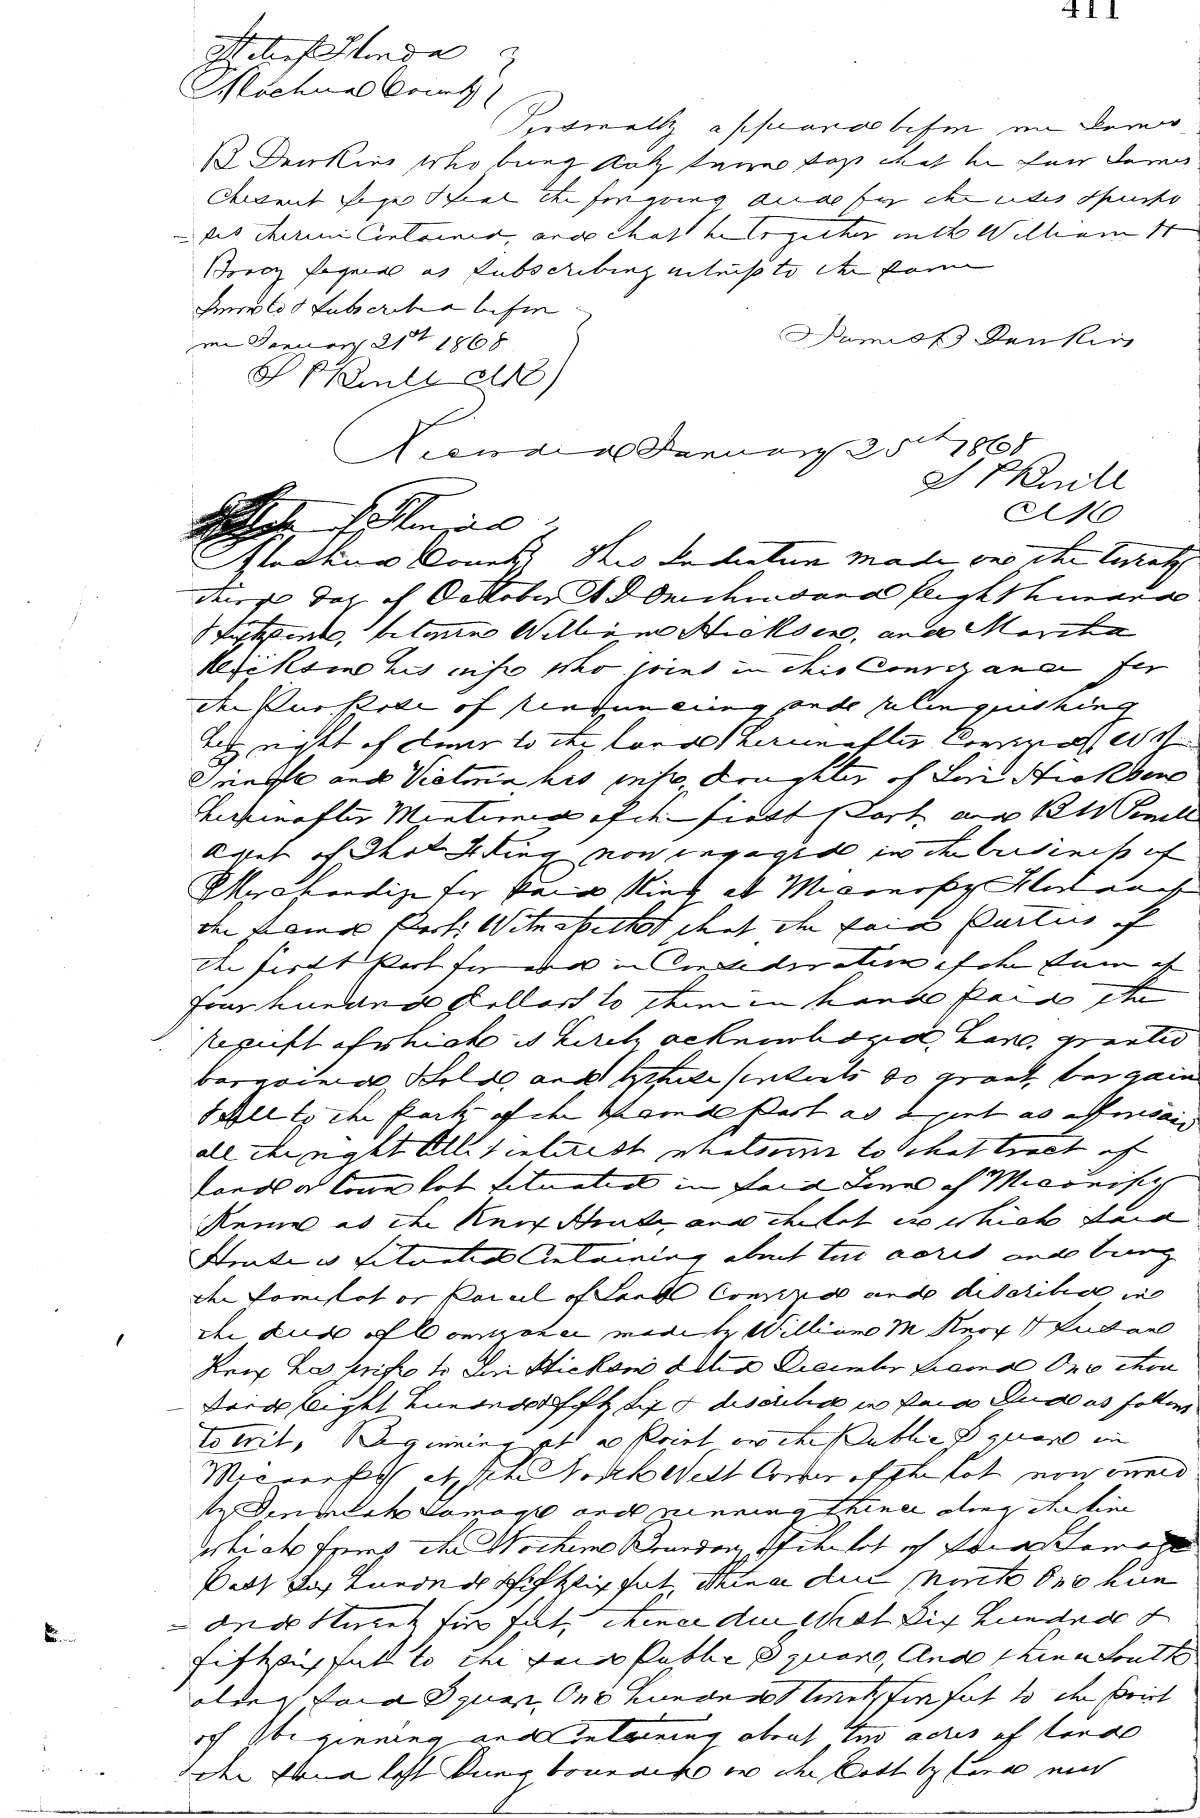 411
State of Florida
Alachua County
Personally appeared before me James
B Dawkins who being duly sworn says that he saw James
Chesnut sign & seal the forgoing deed for the uses & purpo
= ses therein Contained, and that he together with William H
Bracy signed as subscribing witness to the same
Sworn to & subscribed before
me January 21st 1868
James B Dawkins
Clk
Recorded January 25th 1868
Clk
State of Florida
Alachua County This Indenture made on the twenty
third day of October A D One thousand Eight hundred
& Sixty, between William Hickson, and Martha
Hickson his wife who joins in this Conveyance for
the Purpose of renouncing and relinquishing
her right of dower to the land hereinafter Conveyed,
and Victoria his wife, daughter of Levi Hickson
hereinafter Mentioned of the first Part, and B W Powell
agent of Thos King now engaged in the business of
Merchandize for said King at Micanopy Florida of
the second Part; Witnesseth that the said Parties of
the first Part for and in Consideration of the sum of
four hundred dollars to them in hand paid the
receipt of which is hereby acknowledged, have, granted
bargained, & sold, and by these presents do grant, bargain
& sell to the Party of the second Part as agent as aforesaid
all the right title & interest whatsoever to that tract of
land or town lot situated in said Town of Micanopy
Known as the Knox House, and the lot on which said
House is situated Containing about two acres and being
the same lot or Parcel of Land Conveyed and described in
the deed of Conveyance made by William M Knox & Susan
Knox his wife to Levi Hickson dated December second One thou
- sand Eight hundred & fifty six & described in said Deed as follows
to wit, Beginning at a Point on the Public Square in
Micanopy at the North West Corner of the lot now owned
by Jeremiah Ramage and running thence along the line
which forms the Northern Boundary of the lot of said Ramage
East Six hundred & fifty six feet, thence due North One hun
= dred & twenty five feet, thence due West Six hundred &
fifty six feet to the said Public Square, And thence South
along said Square, One hundred & twenty five feet to the Point
of beginning and Containing about two acres of land
the said lot being bounded on the East by land now